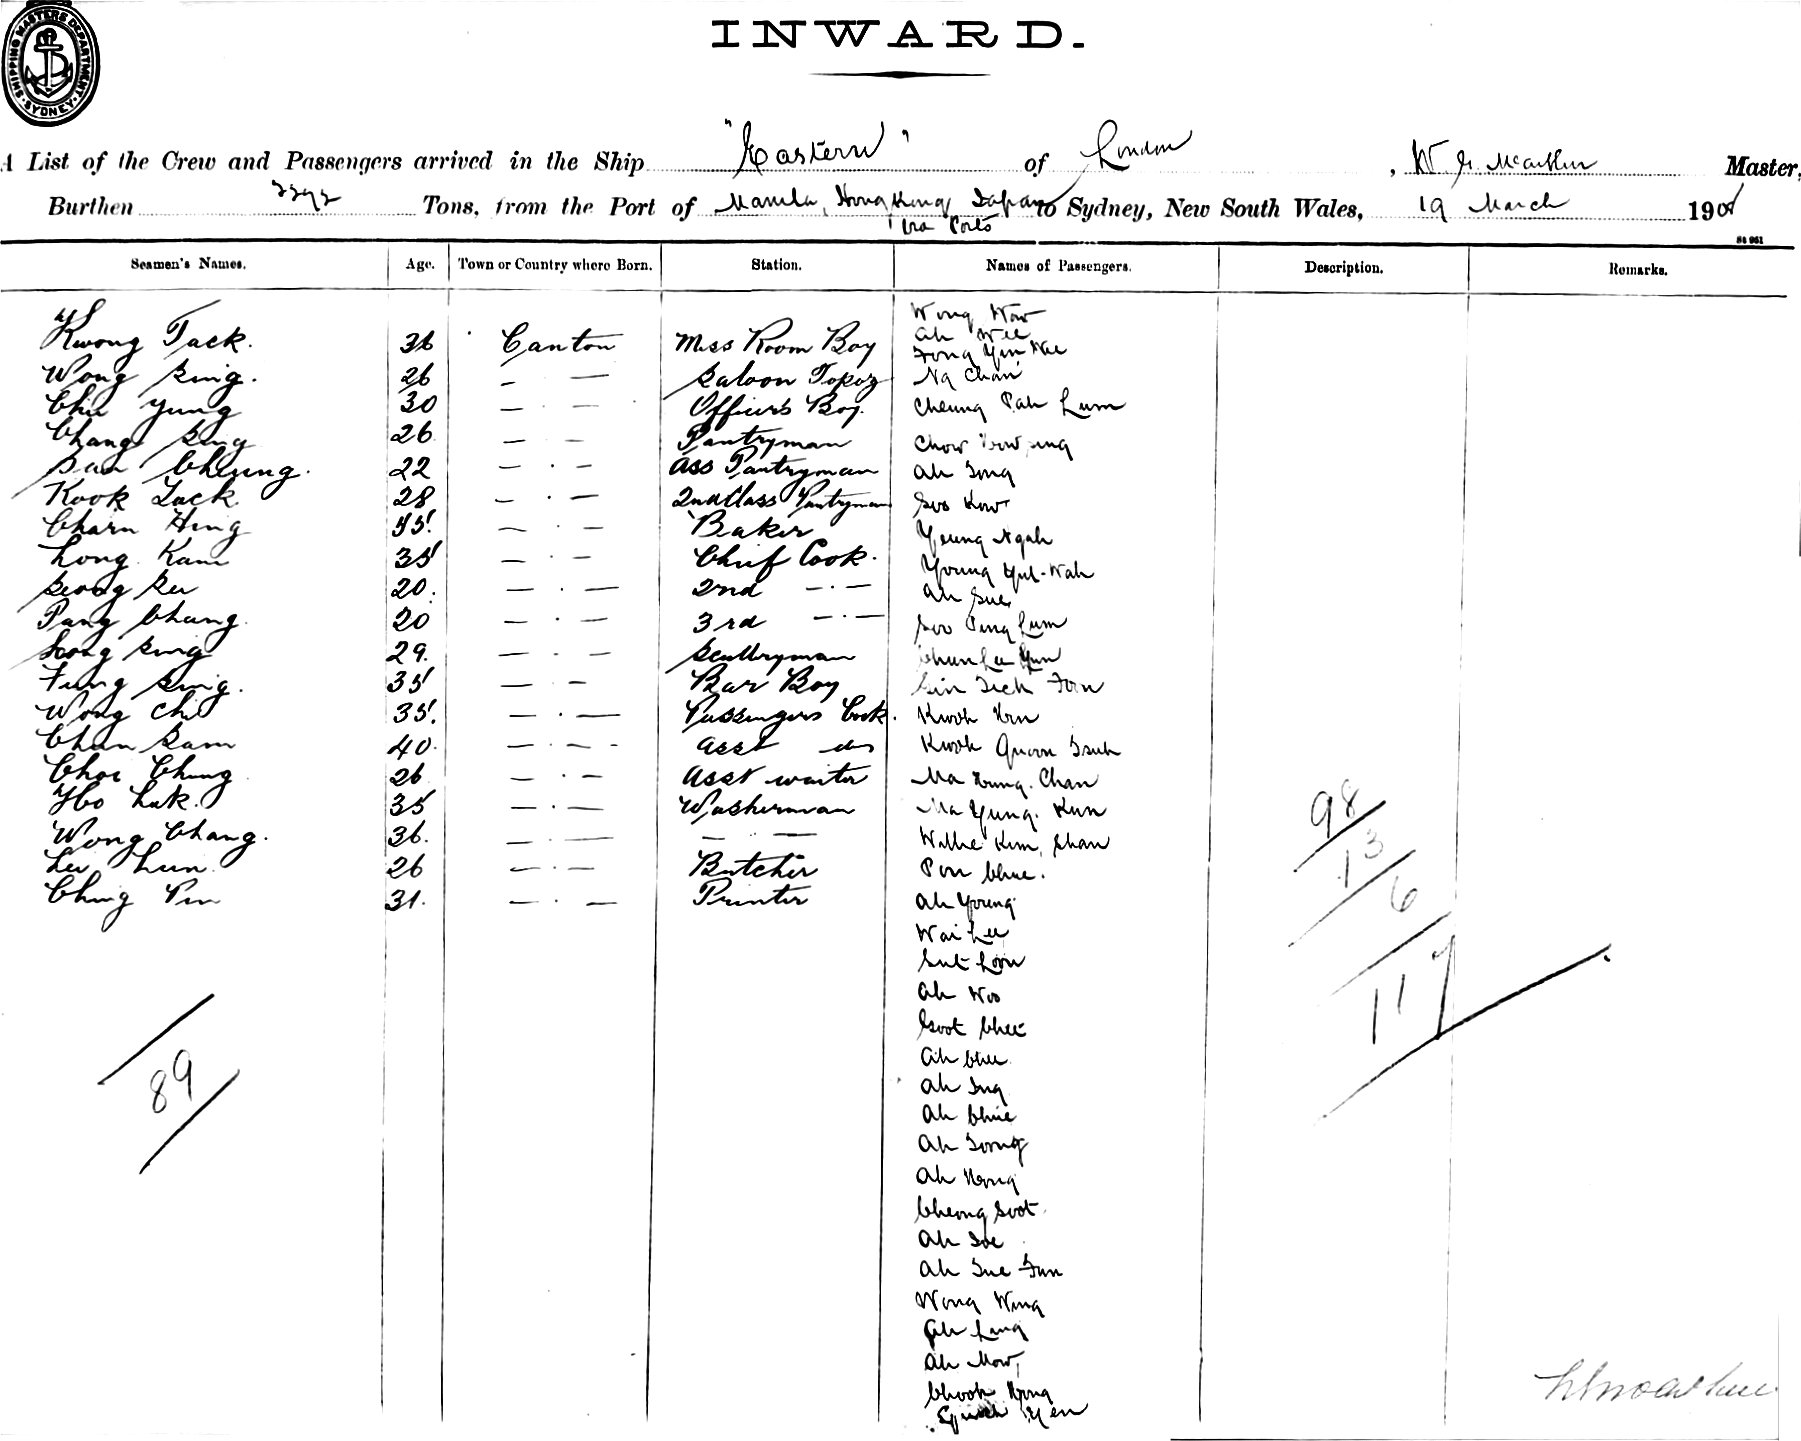 SHIPPING MASTERS DEPARTMENT. SYDNEY
INWARD.
A List of the Crew and Passengers arrived in the Ship "Eastern" of London, W. G. McArthur Master,
Burthen Tons, from the Port of Manila, Hong Kong, Japan to Sydney, New South Wales, 19 March 190
via Ports
Seamen's Names. Age. Town or Country where Born. Station. Names of Passengers. Description. Remarks.
Wong How
Kwong Tack. 36 Canton Mess Room Boy Ah Wee
Wong Sing. 26 — · — Saloon Topaz Ng Chan
Chu Yung 30 — · — Officers Boy. Cheung Pah Lum
Chang Sing 26 — · — Pantryman Chow
San Cheung. 22 — · — Ass Pantryman Ah Song
Kook Tack 28 — · — 2nd Class Pantryman Soo Kow
Charn Hing — · — Baker Young Ngah
Long Kam 35 — · — Chief Cook. Young Yul-Wah
20. — · — 2nd — · — Ah Sue
Pang Chang 20 — · — 3rd — · — Soo Ping Lum
Song Sing 29. — · — Scullryman Chun Lee Yun
Fung Sing. 35 — · — Bar Boy
Wong Chi 35. — · — Passengers Cook. Kwok
Chun Sam 40. — · — Asst do Kwok Quoon
Choi Chung 26 — · — Asst waiter Ma Chan
Luk. 35 — · — Washerman Ma Yung. Kun
Wong Chang. 36. — · — — · — Willie Kim, Shan
Lee Lun 26 — · — Butcher Pon Chue.
Ching Pin 31. — · — Printer Ah Young
Wai Lee
Sut Loon
Ah Woo
Soot Chee
Ah Chee
Ah Ing
Ah Chue
Ah Soong
Ah Hong
Cheong Soot
Ah Soe
Ah Sue Fun
Wong Wing
Ah Ling
Ah Mow,
Chook Hong
Yen
98
13
6
117
89